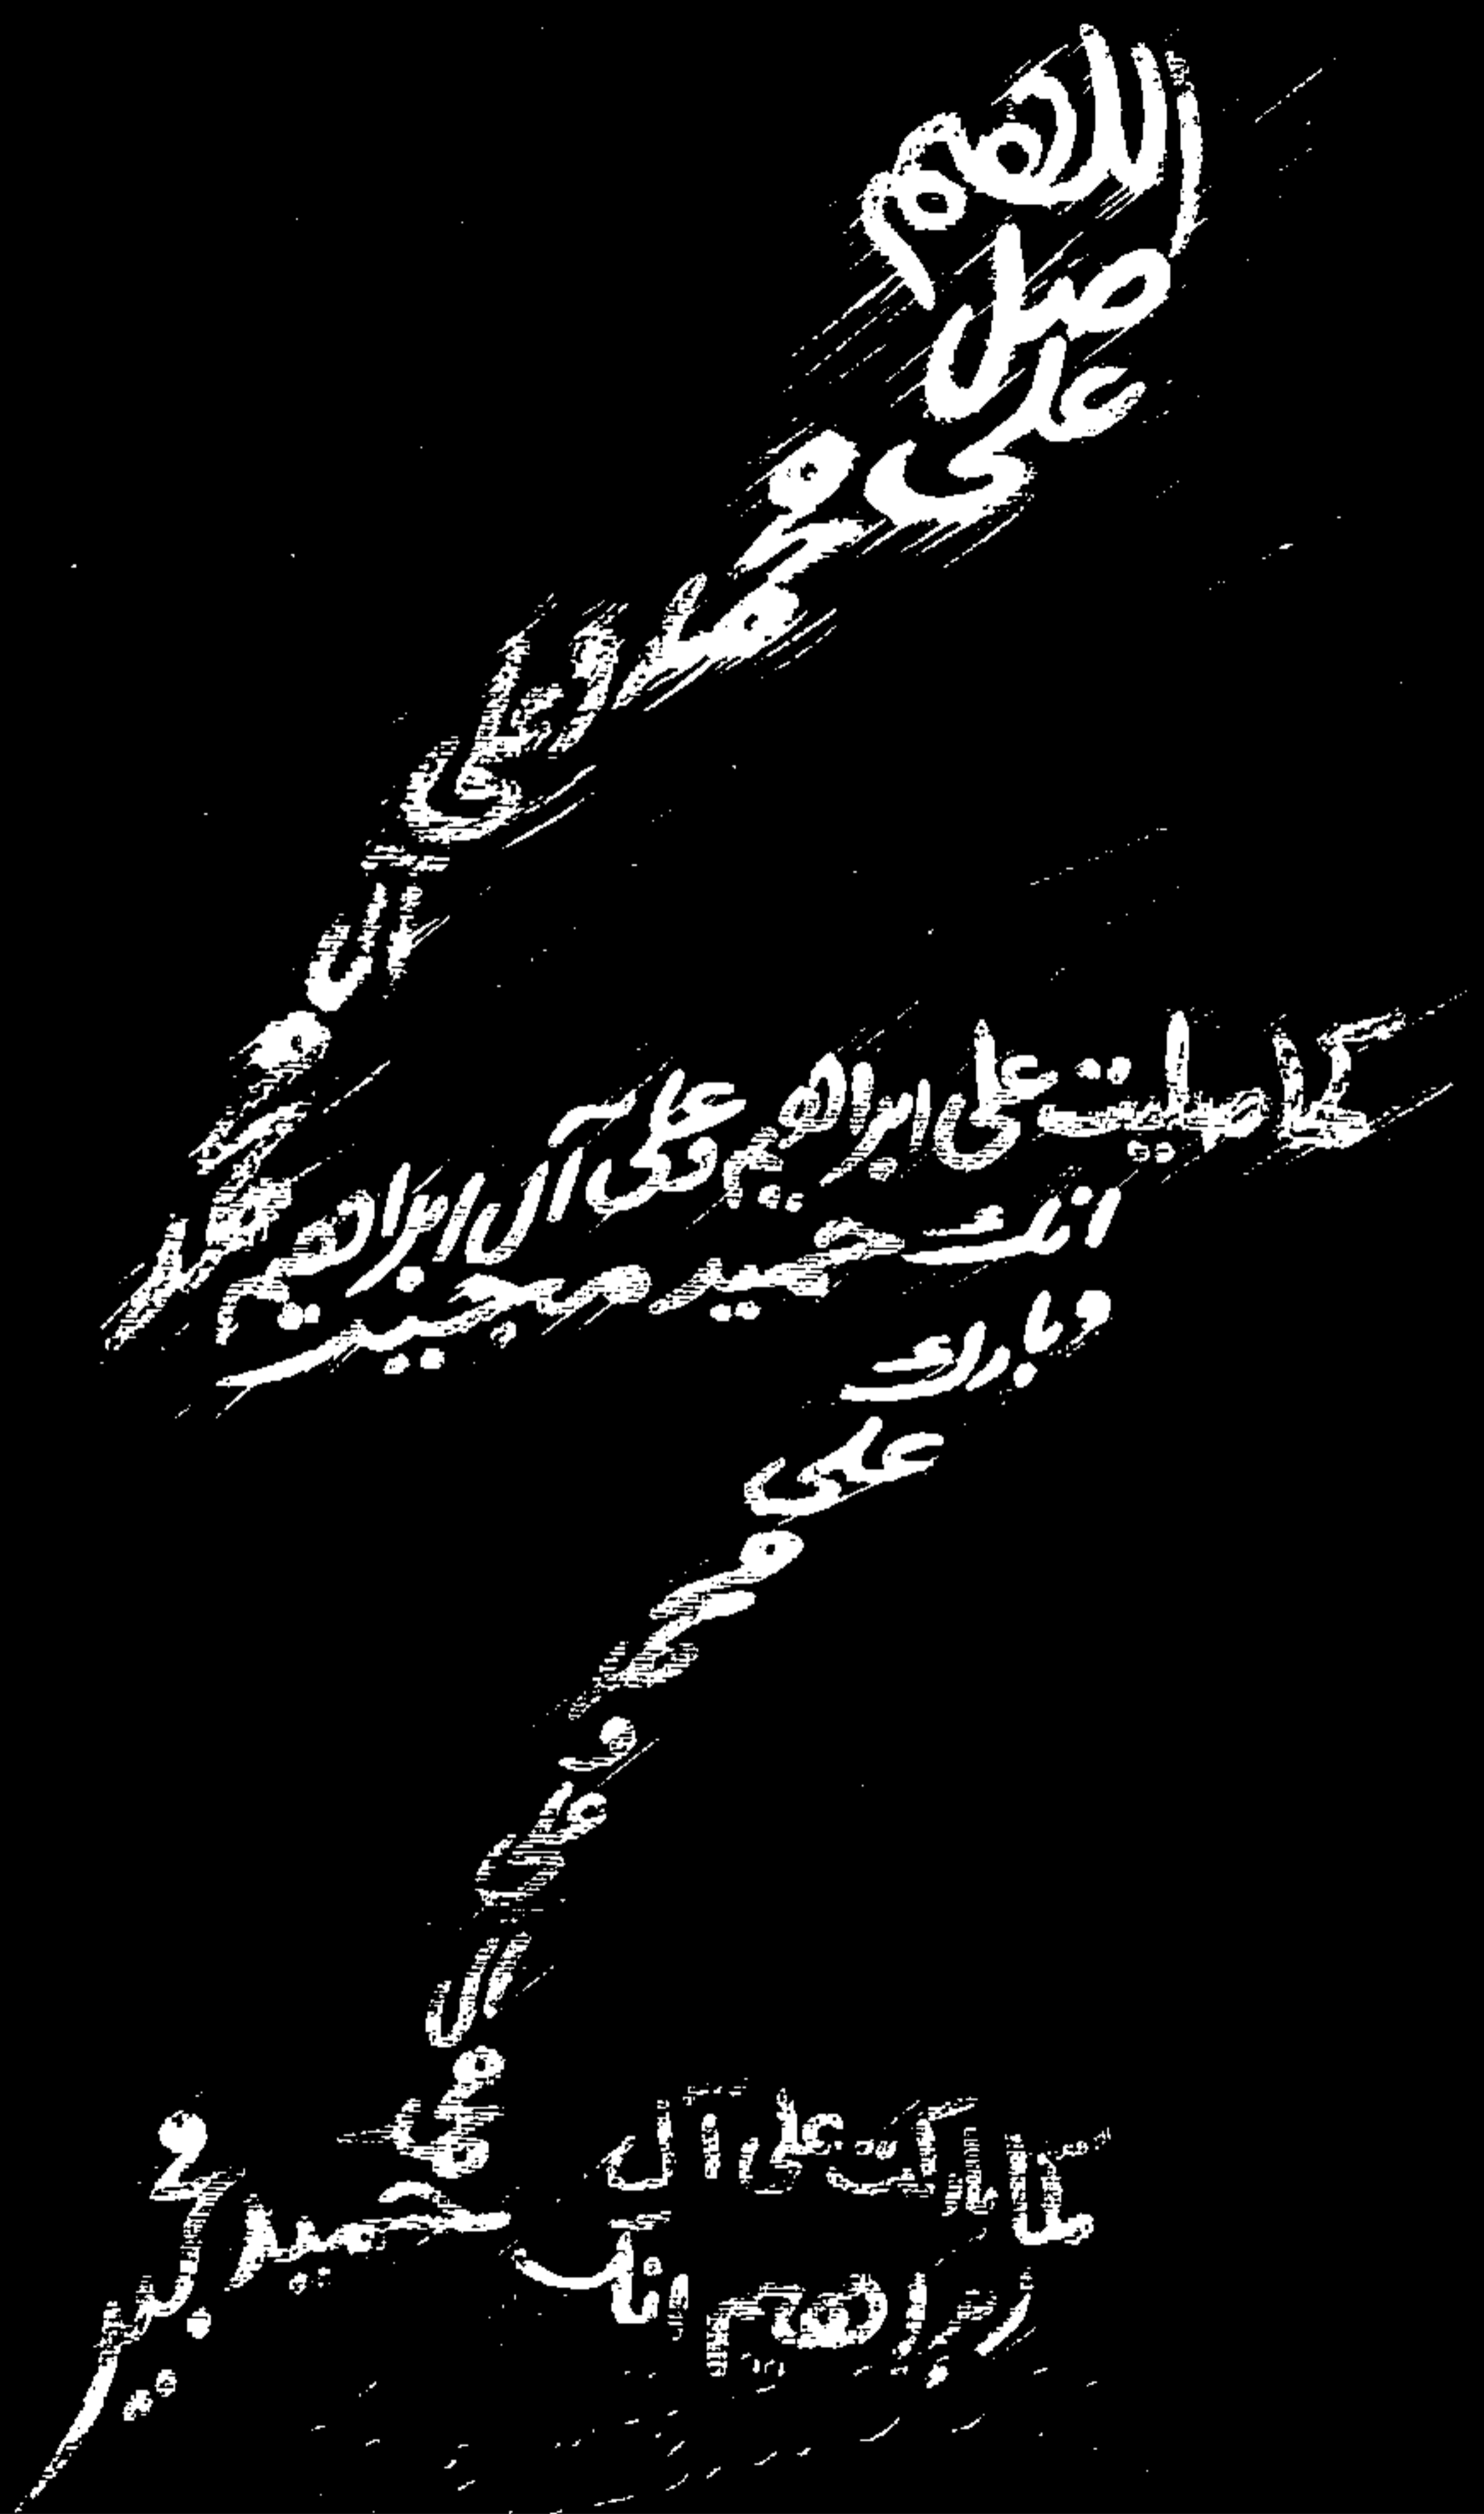 اللهم
صل
على محمد
وعلى
آل
محمد
كما صليت على ابراهيم وعلى آل ابراهيم
انك حميد مجيد
وبارك
على
محمد
و
على
آل
محمد
كما باركت على آل
ابراهيم انك
حميد مجيد